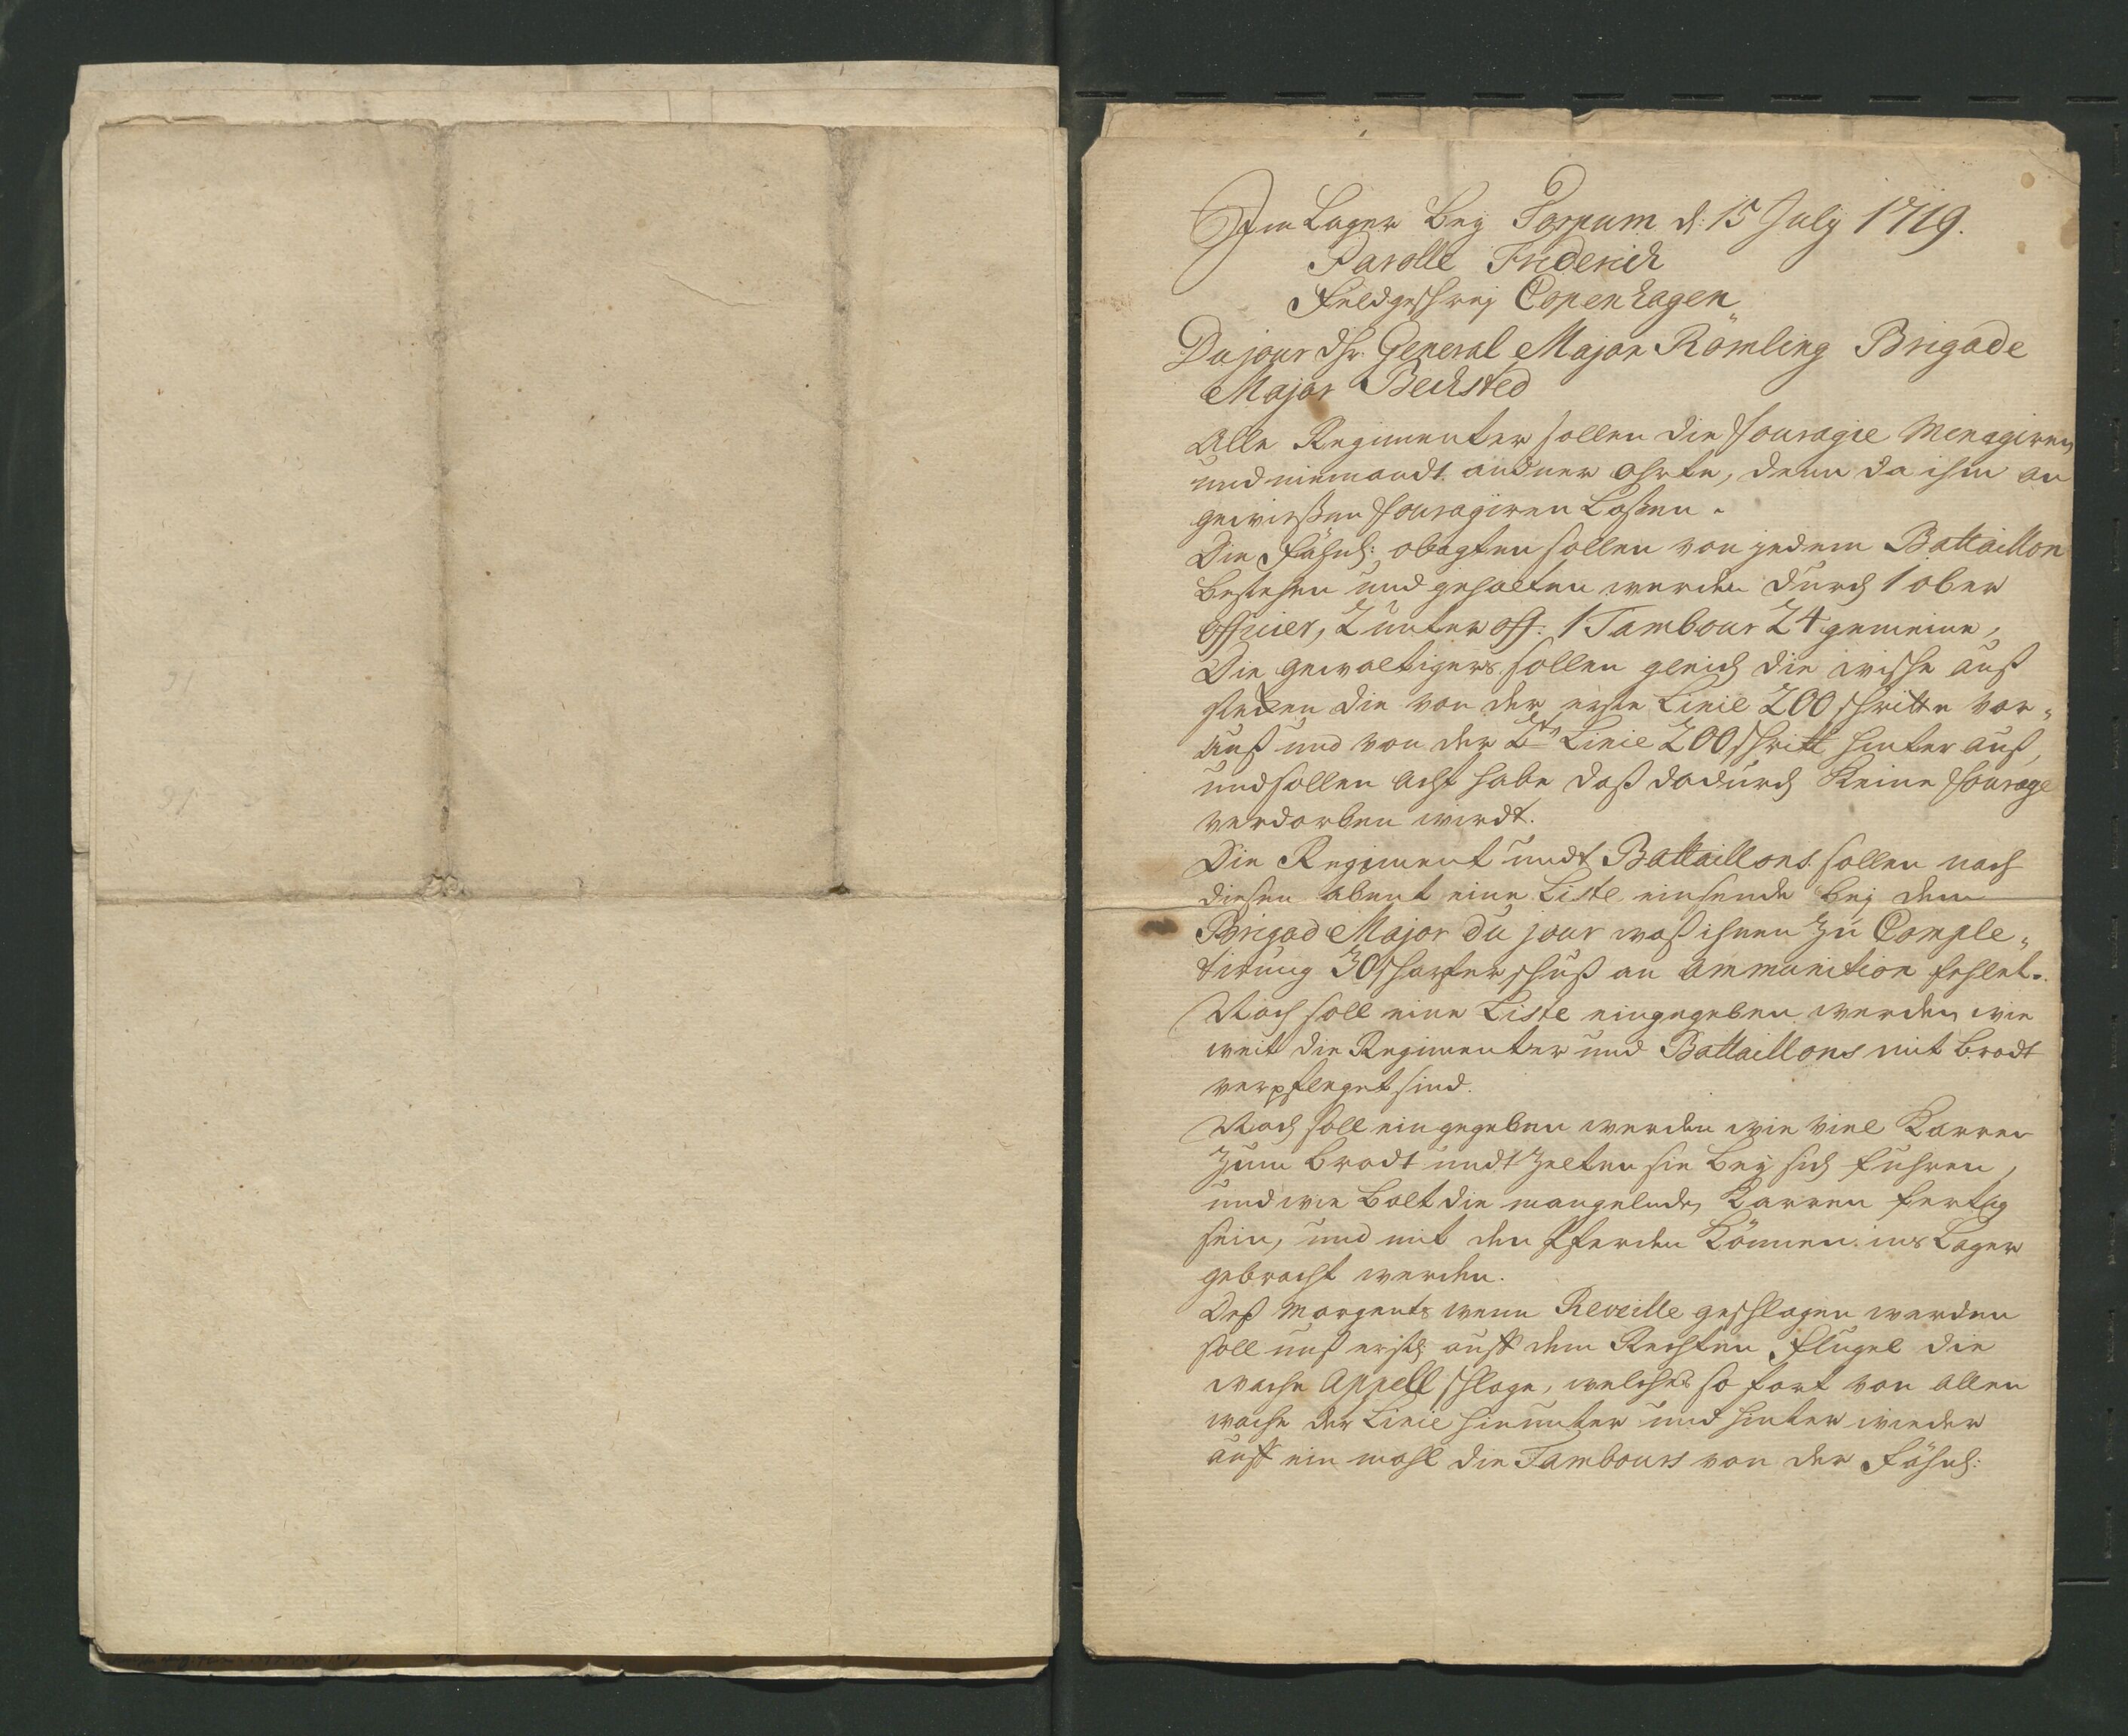 Im Lager beÿ Torpum d: 15 Julÿ 1719.
Parolle Friderich
Feldgeschreÿ Copenhagen„
Du jour Hr. General Major Römling Brigade
Major Bechsted
Alle Regimenter sollen die fouragie menagiren
und niemandt andrer ohrte, denn da ihm an
gewießen fouragiren Laßen.
Die Fähnl: wagten sollen von jedem Battaillon
bestehen und gehalten werden durch 1 ober
officier, 2 unter off. 1 Tambour 24 gemeine,
Die gewaltigers sollen gleich die wische auß
stecken die von der erste Linie 200 schritte vor„
auß und von der 2ten Linie 200 schritt hinter auß,
und sollen acht habe daß dadurch Keine fourage
verdorben wirdt.
Die Regiment undt Battaillons sollen noch
diesen abent eine Liste einsende beÿ dem
Brigad Major du jour waß ihnen zu Comple„
tirung 30 scharfer schuß an ammunition fehlet.
Noch soll eine Liste eingegeben werden wie
weit die Regimenter und Battaillons mit brodt
verpfleget sind.
Noch soll eingegeben werden wie viel Karren
zum brodt undt zelten sie beÿ sich fuhren,
und wie balt die mangelnde Karren fertig
sein, und mit den Pferden Können ins Lager
gebracht werden.
Deß morgents wenn Reveille geschlagen werden
soll muß erstl: auff dem Rechten flugel die
wache Appell schlage, welches so fort von allen
wache der Linie hinunter und hinter wieder
auff ein mahl die Tambours von der Fähnl: